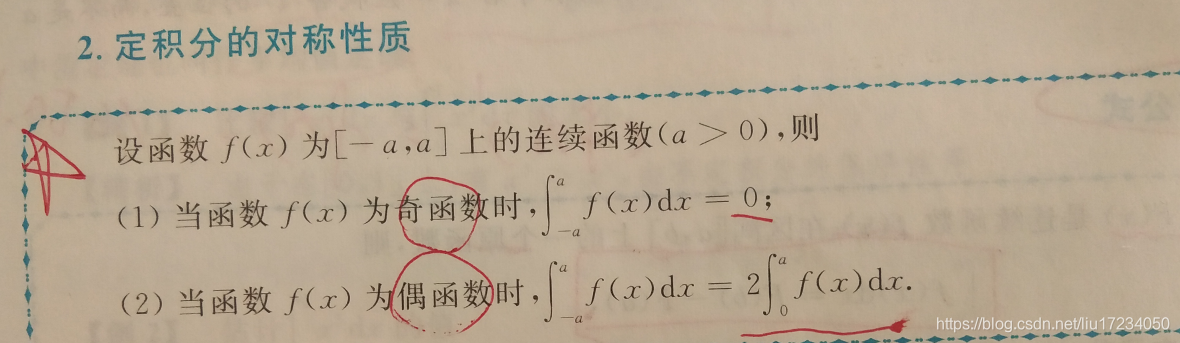 2. 定积分的对称性质
公式
设函数 f(x) 为[-a,a]上的连续函数(a > 0),则
(1) 当函数 f(x) 为奇函数时,∫_{-a}^{a} f(x)dx = 0;
(2) 当函数 f(x) 为偶函数时,∫_{-a}^{a} f(x)dx = 2∫_{0}^{a} f(x)dx.
https://blog.csdn.net/liu17234050